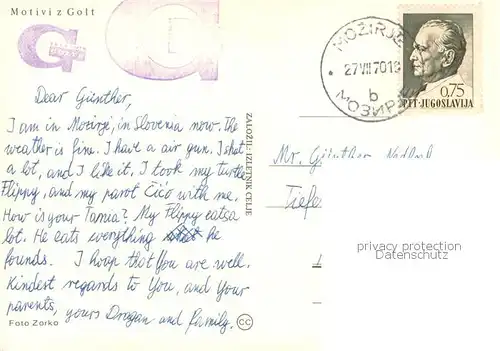 Motivi z Golt
MOZIRJE
27VII7018
b
МОЗИРЈЕ
0,75
PTT-JUGOSLAVIJA
Dear Günther,
I am in Mozirje, in Slovenia now. The
weather is fine. I have a air gun. I shot
a lot, and I like it. I took my turtle
Flippy, and my parot Čičo with me.
How is your Tania? My Flippy eats a
lot. He eats everything he
founds. I hoop that You are well.
Kindest regards to You, and Your
parents, yours Dragan and family.
Foto Zorko
CC
ZALOŽIL: IZLETNIK CELJE
Mr. Günther
Tiefe
privacy protection
Datenschutz